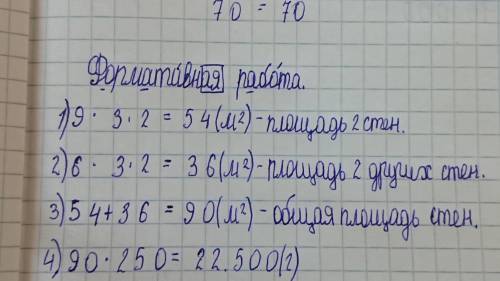 70 = 70
Формативная работа.
1) 9 · 3 · 2 = 54 (м²) - площадь 2 стен.
2) 6 · 3 · 2 = 36 (м²) - площадь 2 других стен.
3) 54 + 36 = 90 (м²) - общая площадь стен.
4) 90 · 250 = 22.500 (г)